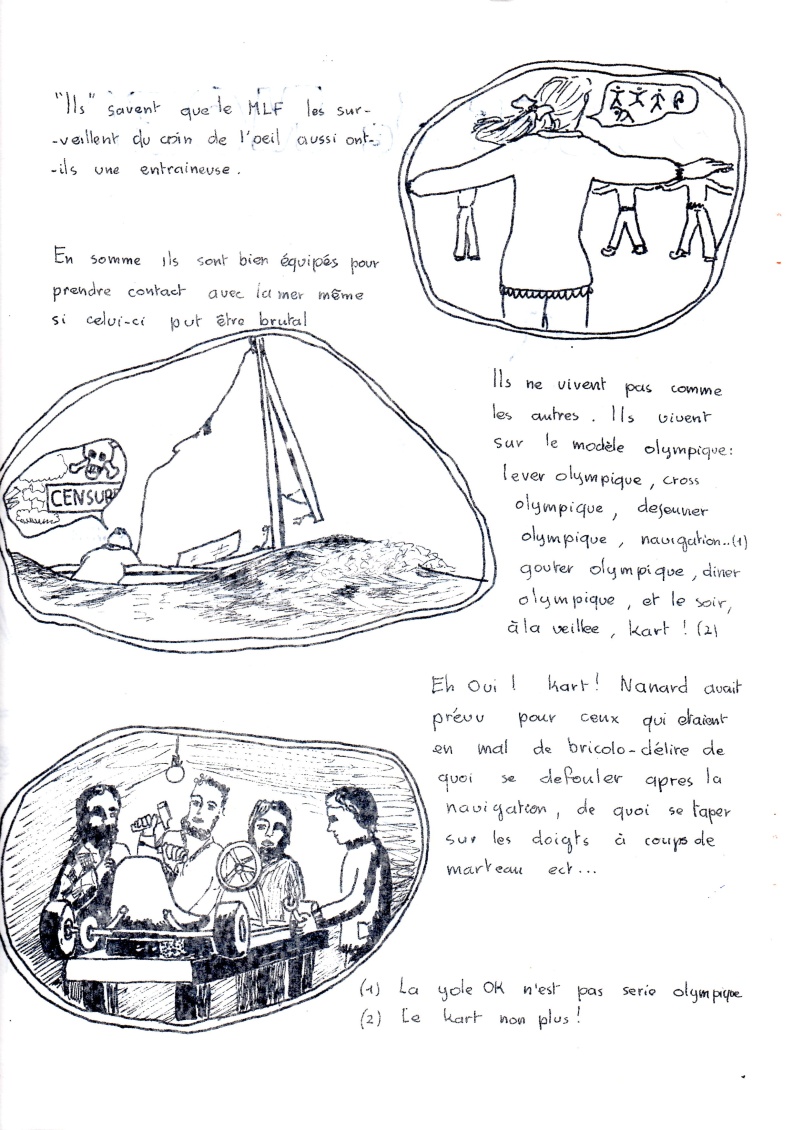 "Ils" savent que le MLF les sur-
-veillent du coin de l'oeil aussi ont-
-ils une entraineuse.
En somme ils sont bien équipés pour
prendre contact avec la mer même
si celui-ci put être brutal
CENSURE
Ils ne vivent pas comme
les autres. Ils vivent
sur le modèle olympique:
lever olympique, cross
olympique, dejeuner
olympique, navigation..(1)
gouter olympique, diner
olympique, et le soir,
à la veillee, kart! (2)
Eh Oui! kart! Nanard avait
prévu pour ceux qui etaient
en mal de bricolo-délire de
quoi se defouler apres la
navigation, de quoi se taper
sur les doigts à coups de
marteau ect...
(1) La yole OK n'est pas serie olympique
(2) Le kart non plus!